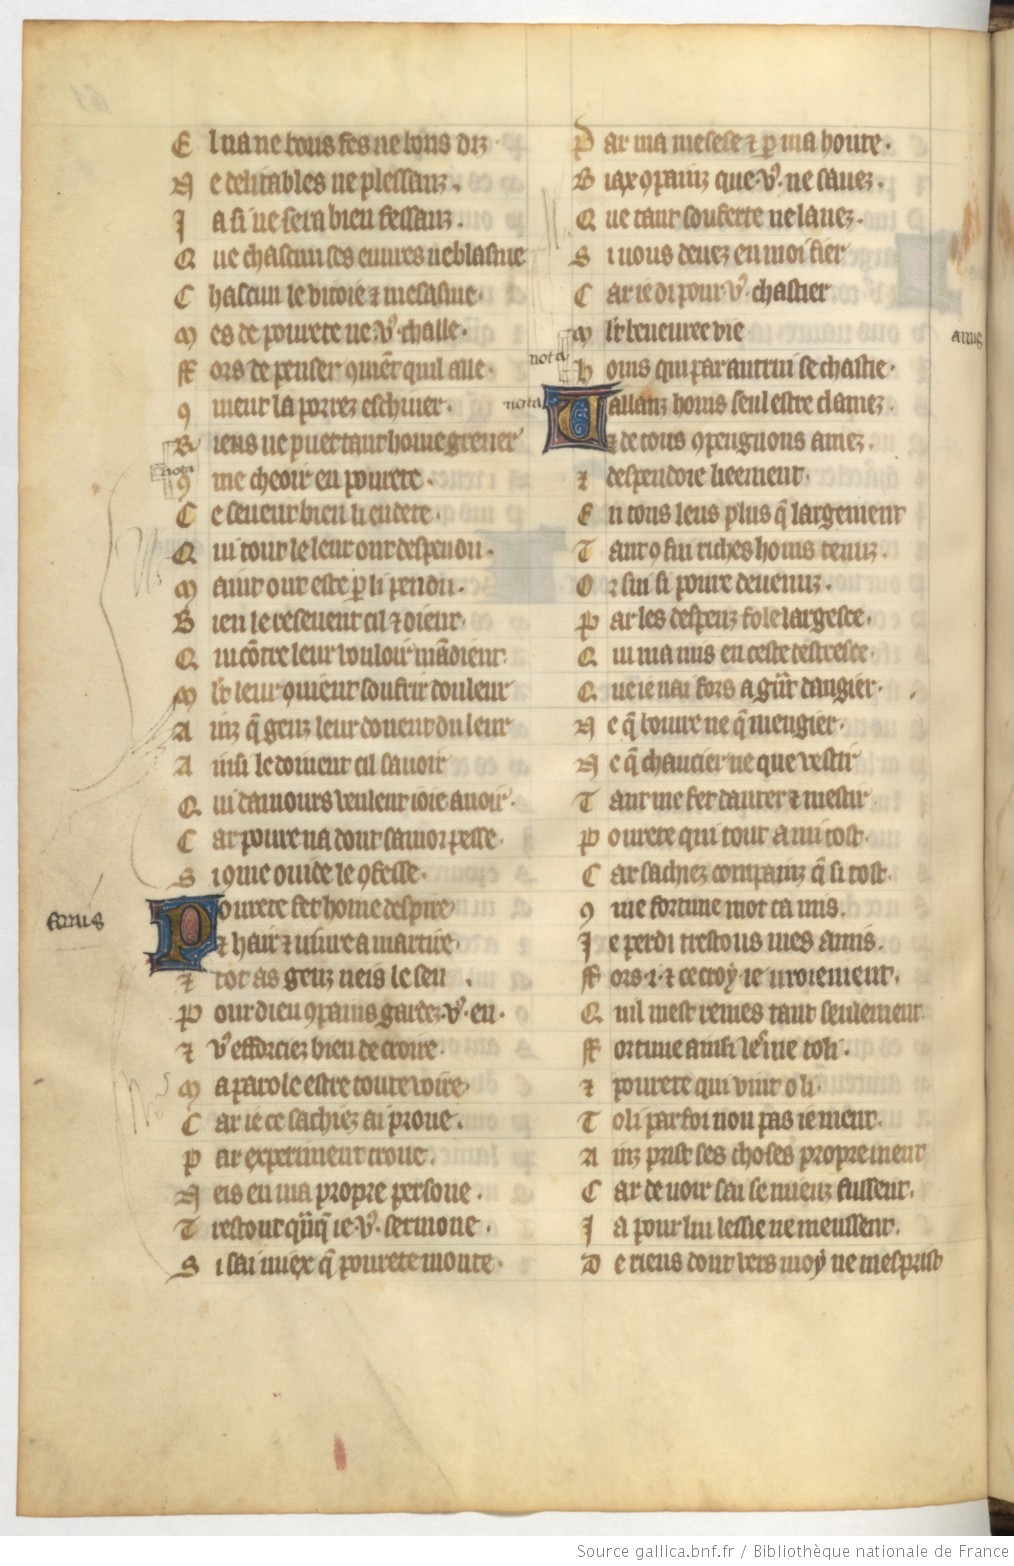 E l na ne bons fes ne bons diz
N e delitables ne plessanz.
J a si ne sera bien fessanz.
Q ue chascun ses euures ne blasme
C hascun le vitoie ⁊ mesasme·
M es de pourete ne vꝰ challe·
ff ors de penser ꝯmẽt quil alle·
ꝯ ment la porrez eschiuer·
R iens ne puet tant home greuer
ꝯ me cheoir en pourete·
C e seuent bien li endete·
Q ui tout le leur ont despendu·
M aint ont este ꝑ li pendu·
B ien le reseuent cil ⁊ dient·
Q ui cõtre leur vouloir mãdient·
M lt leur ꝯuient soufrir douleur
A inz q̃ genz leur donent du leur
A insi le doiuent cil sauoir
Q ui damours veulent ioie auoir·
C ar poure na dont samor pesse·
S i ꝯme ouide le ꝯfesse·
P ourete fet home despire
⁊ hair ⁊ viure a martire·
⁊ tot as genz neis le sen .
P our dieu ꝯpains gardez·vꝰ·en·
⁊ vꝰ efforciez bien de croire·
M a parole estre toute voire·
C ar ie ce sachiez ai proue·
P ar experiment troue·
N eis en ma propre persone·
T restout q̃q̃ ie vꝰ· sermone·
S i sai miex q̃ pourete monte·
P ar ma mesese ⁊ ꝑ ma honte·
B iax ꝯpainz que·vꝰ· ne sauez·
Q ue tant souferte ne lauez·
S i vous deuez en moi fier
C ar ie di pour vꝰ· chastier
M lt beneuree vie
h oms qui par autrui se chastie·
U allanz homs seul estre clamez·
⁊ de touz ꝯpengnons amez·
⁊ despendoie lieement·
E n touz leus plus q̃ largement
T ant ꝯ fui riches homs tenuz·
O r sui si poure deuenuz·
P ar les despenz fole largesce·
Q ui ma mis en ceste destresce·
Q ue ie nai fors a g̃nt dangier·
N e q̃ boiure ne q̃ mengier·
N e q̃ chaucier ne que vestir
T ant me set danter ⁊ mestir
P ourete qui tout ami tost·
C ar sachiez compainz q̃ si tost·
ꝯ me fortune mot ca mis.
J e perdi trestous mes amis.
ff ors·i·⁊ ce croy ie uroiement·
Q uil mest remes tant seulement
ff ortune ainsi les me toli·
⁊ pourete qui vint o li·
T oli par foi non pas ie ment·
A inz prist ses choses proprement
C ar de voir sai se miens fussent·
J a pour lui lessie ne meussent·
D e riens dont vers moy ne mesprist
nota
nota
nota